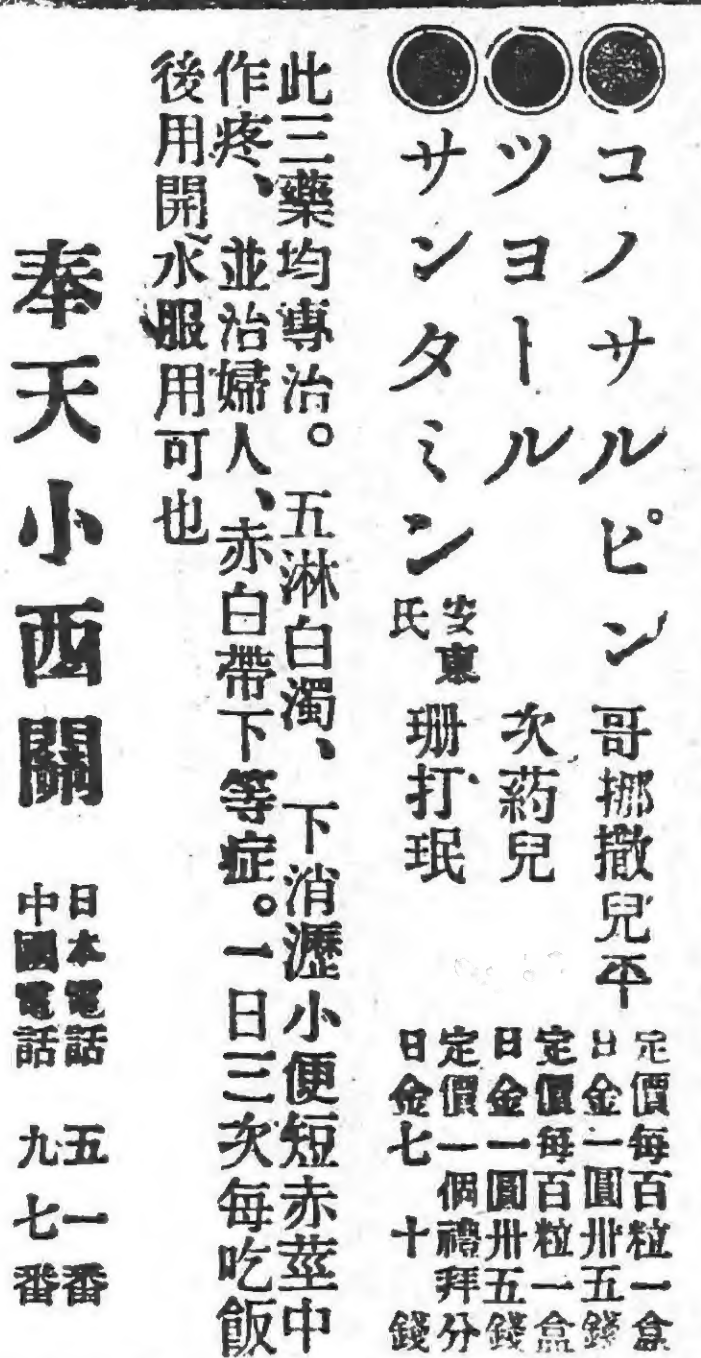 コノサルピン 哥挪撒兒平 定價每百粒一盒
日金一圓卅五錢
ツヨール 次葯兒 定價每百粒一盒
日金一圓卅五錢
サンタミン 安東氏 珊打珉 定價一個禮拜分
日金七十錢
此三藥均專治。五淋白濁、下消瀝小便短赤莖中
作疼、並治婦人、赤白帶下等症。一日三次每吃飯
後用開水服用可也
奉天小西關 日本電話 五一番
中國電話 九七番